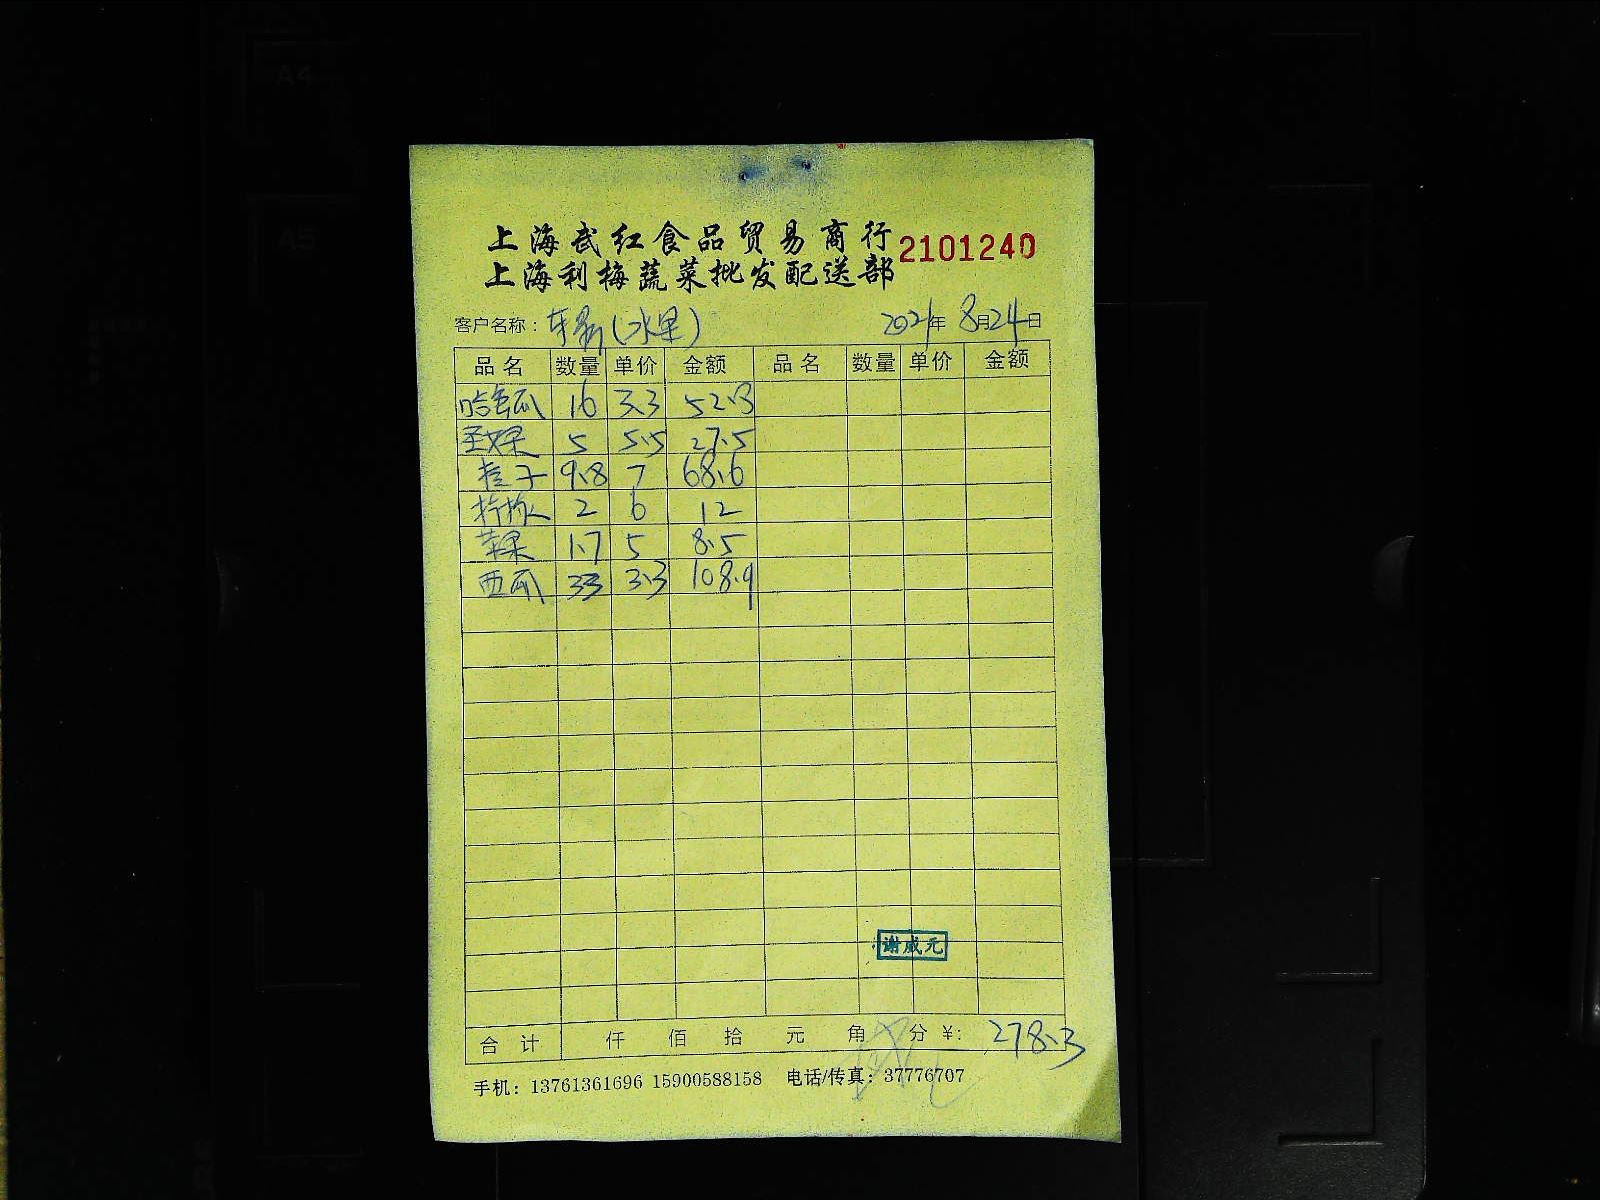 A4
A5
上海武红食品贸易商行
2101240
上海利梅蔬菜批发配送部
客户名称： (水果) 2021年 8月24日
品名 数量 单价 金额 品名 数量 单价 金额
哈密瓜 16 3.3 52.3
圣女果 5 5.5 27.5
桔子 9.8 7 68.6
柠檬 2 6 12
苹果 1.7 5 8.5
西瓜 33 3.3 108.9
谢成元
合计 仟 佰 拾 元 角 分 ¥: 278.3
手机：13761361696 15900588158 电话/传真：37776707